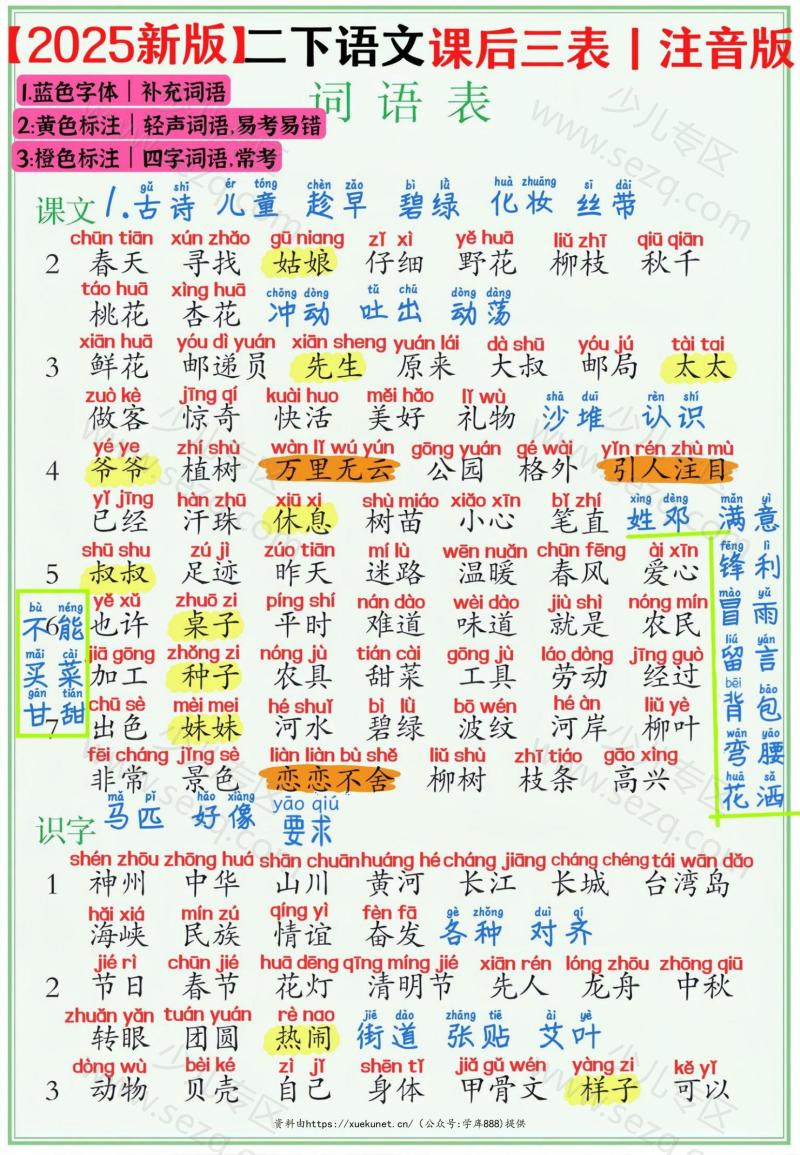 【2025新版】二下语文课后三表丨注音版
1.蓝色字体｜补充词语
2:黄色标注｜轻声词语,易考易错
3:橙色标注｜四字词语,常考
词语表
gǔ shī ér tóng chèn zǎo bì lǜ huà zhuāng sī dài
课文 1.古诗 儿童 趁早 碧绿 化妆 丝带
chūn tiān xún zhǎo gū niang zǐ xì yě huā liǔ zhī qiū qiān
2 春天 寻找 姑娘 仔细 野花 柳枝 秋千
táo huā xìng huā chōng dòng tǔ chū dòng dàng
桃花 杏花 冲动 吐出 动荡
xiān huā yóu dì yuán xiān sheng yuán lái dà shū yóu jú tài tai
3 鲜花 邮递员 先生 原来 大叔 邮局 太太
zuò kè jīng qí kuài huo měi hǎo lǐ wù shā duī rèn shí
做客 惊奇 快活 美好 礼物 沙堆 认识
yé ye zhí shù wàn lǐ wú yún gōng yuán gé wài yǐn rén zhù mù
4 爷爷 植树 万里无云 公园 格外 引人注目
yǐ jīng hàn zhū xiū xi shù miáo xiǎo xīn bǐ zhí xìng dèng mǎn yì
已经 汗珠 休息 树苗 小心 笔直 姓邓 满意
shū shu zú jì zúo tiān mí lù wēn nuǎn chūn fēng ài xīn fēng lì
5 叔叔 足迹 昨天 迷路 温暖 春风 爱心 锋利
bù néng yě xǔ zhuō zi píng shí nán dào wèi dào jiù shì nóng mín mào yǔ
6 不能 也许 桌子 平时 难道 味道 就是 农民 冒雨
mǎi cài jiā gōng zhǒng zi nóng jù tián cài gōng jù láo dòng jīng guò liú yán
买菜 加工 种子 农具 甜菜 工具 劳动 经过 留言
gān tián chū sè mèi mei hé shuǐ bì lǜ bō wén hé àn liǔ yè bēi bāo
7 甘甜 出色 妹妹 河水 碧绿 波纹 河岸 柳叶 背包
fēi cháng jǐng sè liàn liàn bù shě liǔ shù zhī tiáo gāo xìng wān yāo
非常 景色 恋恋不舍 柳树 枝条 高兴 弯腰
huā sǎ
花洒
mǎ pǐ hǎo xiàng yāo qiú
识字 马匹 好像 要求
shén zhōu zhōng huá shān chuān huáng hé cháng jiāng cháng chéng tái wān dǎo
1 神州 中华 山川 黄河 长江 长城 台湾岛
hǎi xiá mín zú qíng yì fèn fā gè zhǒng duì qí
海峡 民族 情谊 奋发 各种 对齐
jié rì chūn jié huā dēng qīng míng jié xiān rén lóng zhōu zhōng qiū
2 节日 春节 花灯 清明节 先人 龙舟 中秋
zhuǎn yǎn tuán yuán rè nao jiē dào zhāng tiē ài yè
转眼 团圆 热闹 街道 张贴 艾叶
dòng wù bèi ké zì jǐ shēn tǐ jiǎ gǔ wén yàng zi kě yǐ
3 动物 贝壳 自己 身体 甲骨文 样子 可以
资料由https://xuekunet.cn/（公众号:学库888)提供
少儿专区
www.sezq.com